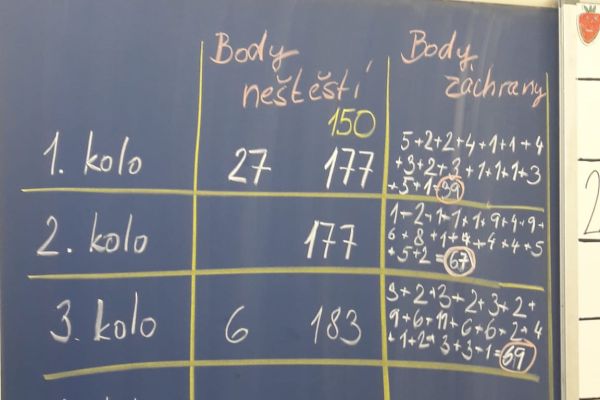 Body neštěstí
Body záchrany
150
1. kolo 27 177
5+2+2+4+1+1+4
+3+2+3+1+1+1+3
+5+1=39
2. kolo 177
1+2+1+1+1+9+4+9+
6+8+1+4+4+4+5
+5+2=67
3. kolo 6 183
3+2+3+2+3+2+
9+6+11+6+6+2+4
+1+2+3+3+1=69
2